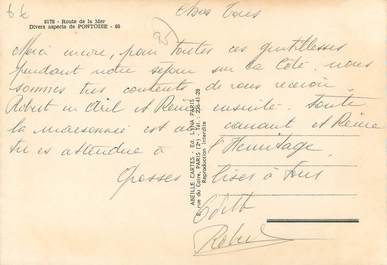 6€
9176 - Route de la Mer
Divers aspects de PONTOISE - 95
Chers tous
Merci encore, pour toutes ces gentillesses
pendant notre séjour sur la Côte. nous
sommes très contents de vous revoir
Robert en Avril et Reine ensuite. toute
la maisonnée est au courant et Reine
tu es attendue à l'Hermitage.
Grosses bises à tous
Edith
Robert
ABEILLE CARTES - Ed. LYNA PARIS
8, rue du Caire, PARIS (2e) - Tél. : 236-41-20
Reproduction interdite